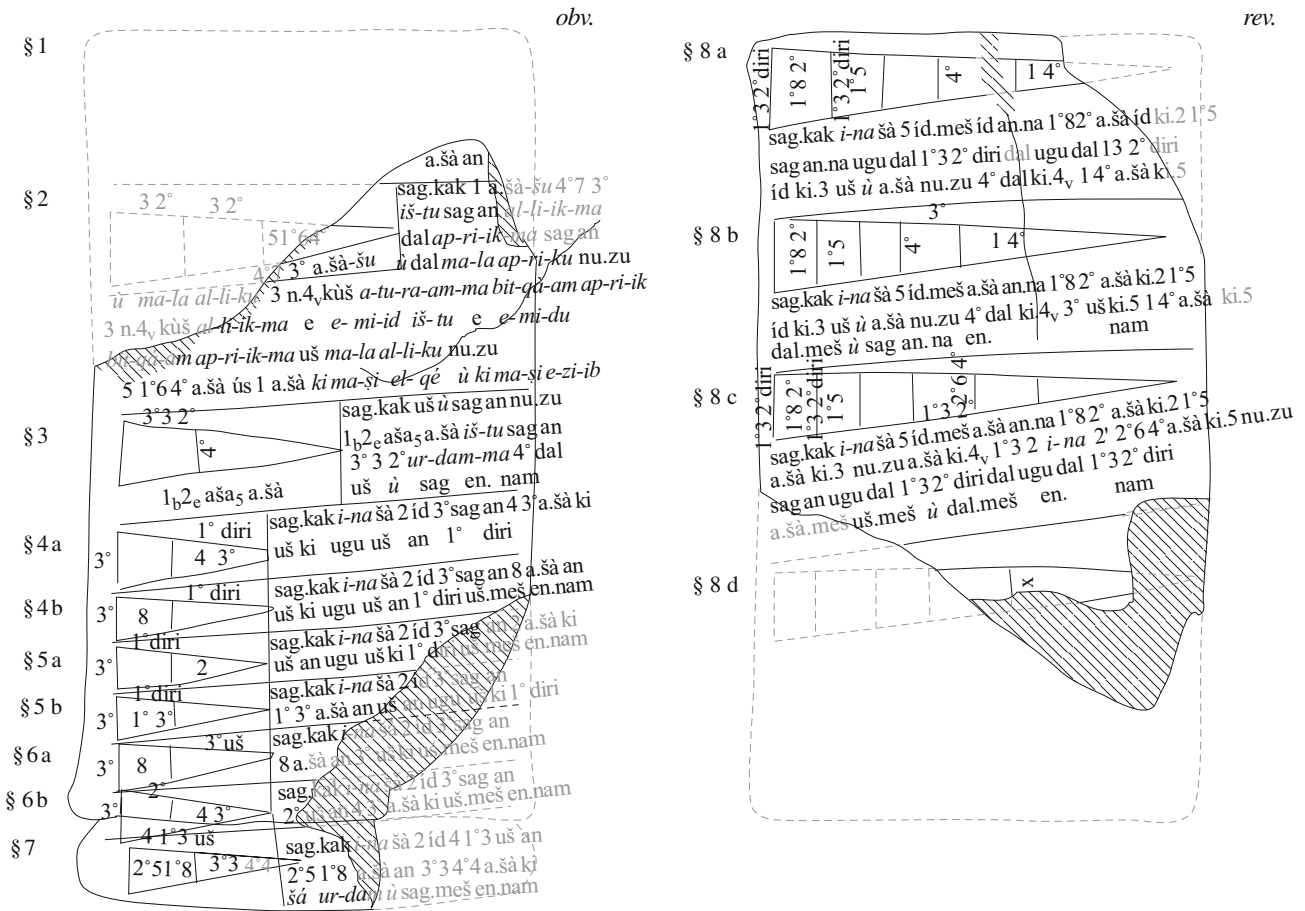 obv.
§ 1
a.šà an
§ 2
3 2° 3 2°
sag.kak 1 a.šà-šu 4°7 3°
iš-tu sag an al-li-ik-ma
51°64°
dal ap-ri-ik-ma sag an
4° 3° a.šà-šu ù dal ma-la ap-ri-ku nu.zu
ù ma-la al-li-ku 3 n.4v kùš a-tu-ra-am-ma bit-qà-am ap-ri-ik
3 n.4v kùš al-li-ik-ma e e-mi-id iš-tu e e-mi-du
bit-qà-am ap-ri-ik-ma uš ma-la al-li-ku nu.zu
5 1°6 4° a.šà ús 1 a.šà ki ma-ṣi el-qé ù ki ma-ṣi e-zi-ib
§ 3
3°3 2°
4°
1b2e aša5 a.šà
sag.kak uš ù sag an nu.zu
1b2e aša5 a.šà iš-tu sag an
3° 3 2° ur-dam-ma 4° dal
uš ù sag en. nam
§ 4 a
1° diri
3° 4 3°
sag.kak i-na šà 2 íd 3° sag an 4 3° a.šà ki
uš ki ugu uš an 1° diri
§ 4b
1° diri
3° 8
sag.kak i-na šà 2 íd 3° sag an 8 a.šà an
uš ki ugu uš an 1° diri uš.meš en.nam
§ 5a
1° diri
3° 2
sag.kak i-na šà 2 íd 3° sag an 2 a.šà ki
uš an ugu uš ki 1° diri uš meš en.nam
§ 5 b
1° diri
3° 1° 3°
sag.kak i-na šà 2 íd 3° sag an
1° 3° a.šà an uš an ugu uš ki 1° diri
§ 6a
3° uš
3° 8
sag.kak i-na šà 2 íd 3° sag an
8 a.šà an 3° uš ki uš.meš en.nam
§ 6b
2°
3° 4 3°
sag.kak i-na šà 2 íd 3° sag an
2° uš an 4 3° a.šà ki uš.meš en.nam
§ 7
4 1°3 uš
2°5 1°8 3°3 4°4
sag.kak i-na šà 2 íd 4 1°3 uš an
2°5 1°8 a.šà an 3°3 4°4 a.šà ki
šá ur-dam ù sag.meš en.nam
rev.
§ 8 a
1°3 2° diri 1°8 2° 1°3 2° diri 1°5 4° 1 4°
sag.kak i-na šà 5 íd.meš íd an.na 1°82° a.šà íd ki.2 1°5
sag an.na ugu dal 1°3 2° diri dal ugu dal 13 2° diri
íd ki.3 uš ù a.šà nu.zu 4° dal ki.4v 1 4° a.šà ki.5
§ 8 b
3°
1°8 2° 1°5 4° 1 4°
sag.kak i-na šà 5 íd.meš a.šà an.na 1°8 2° a.šà ki.2 1°5
íd ki.3 uš ù a.šà nu.zu 4° dal ki.4v 3° uš ki.5 1 4° a.šà ki.5
dal.meš ù sag an. na en. nam
§ 8 c
1°3 2° diri 1°8 2° 1°3 2° diri 1°5 1°3 2° 2°6 4°
sag.kak i-na šà 5 íd.meš a.šà an.na 1°8 2° a.šà ki.2 1°5
a.šà ki.3 nu.zu a.šà ki.4v 1°3 2 i-na 2' 2°6 4° a.šà ki.5 nu.zu
sag an ugu dal 1°3 2° diri dal ugu dal 1°3 2° diri
a.šà.meš uš.meš ù dal.meš en. nam
§ 8 d
x